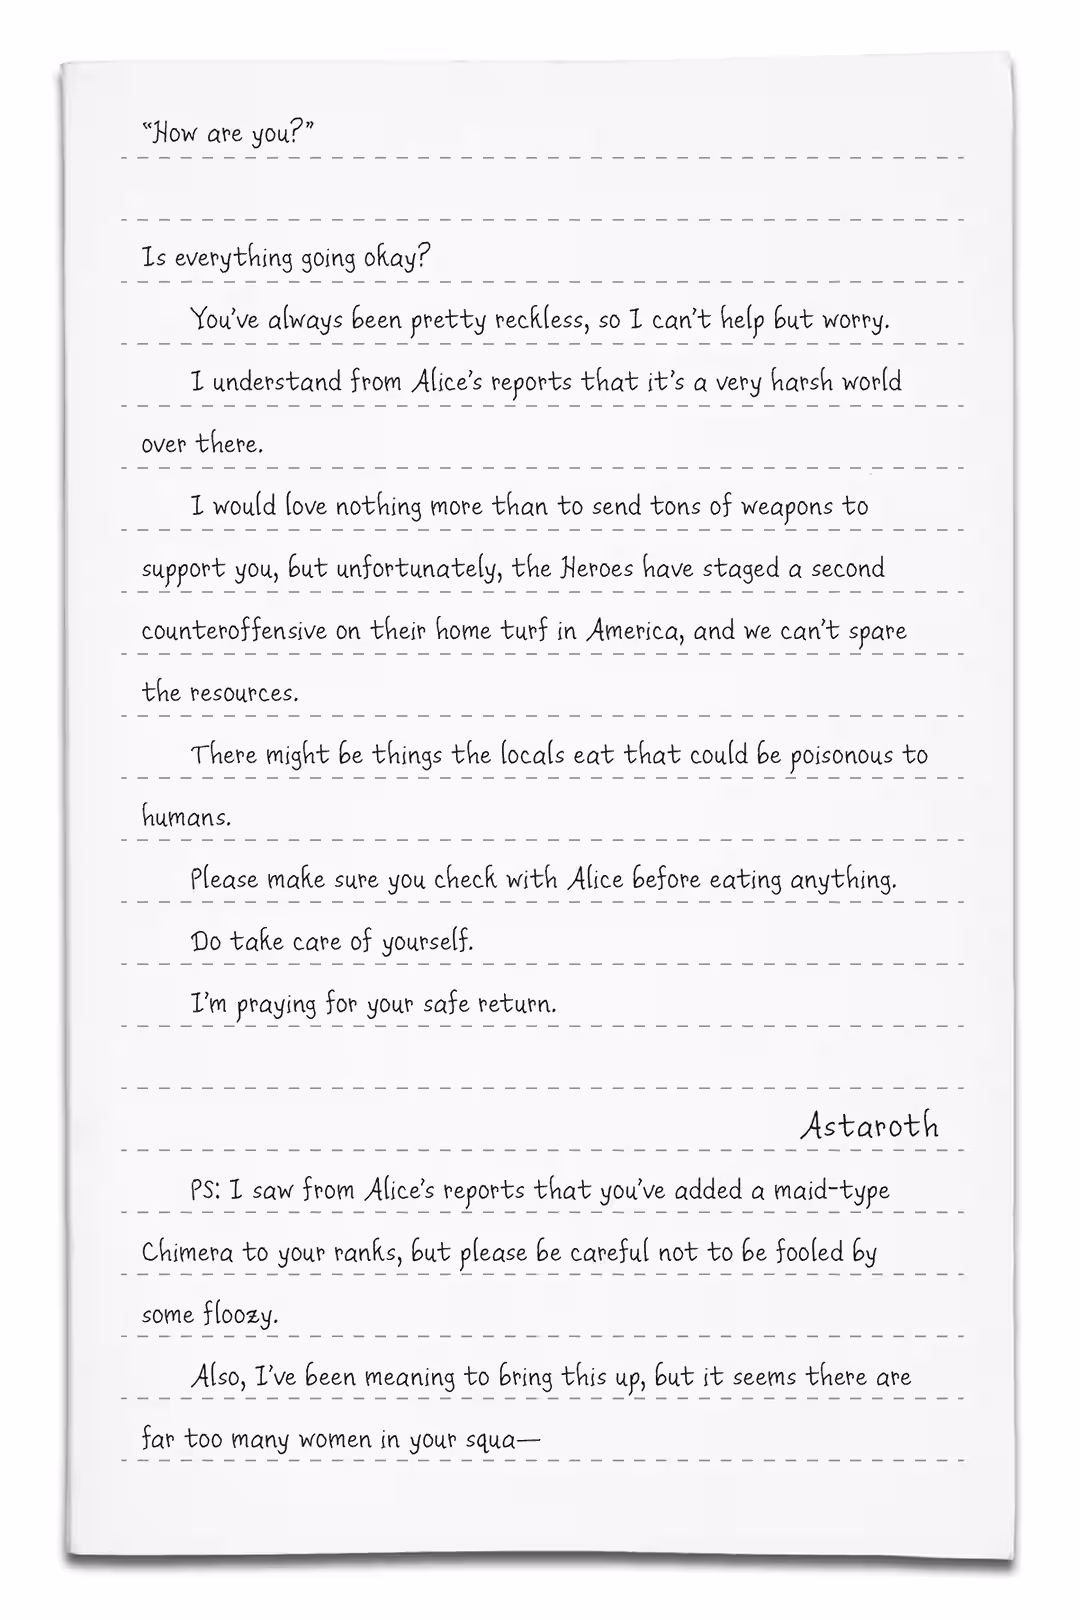 “How are you?”
Is everything going okay?
You’ve always been pretty reckless, so I can’t help but worry.
I understand from Alice’s reports that it’s a very harsh world
over there.
I would love nothing more than to send tons of weapons to
support you, but unfortunately, the Heroes have staged a second
counteroffensive on their home turf in America, and we can’t spare
the resources.
There might be things the locals eat that could be poisonous to
humans.
Please make sure you check with Alice before eating anything.
Do take care of yourself.
I’m praying for your safe return.
Astaroth
PS: I saw from Alice’s reports that you’ve added a maid-type
Chimera to your ranks, but please be careful not to be fooled by
some floozy.
Also, I’ve been meaning to bring this up, but it seems there are
far too many women in your squa—